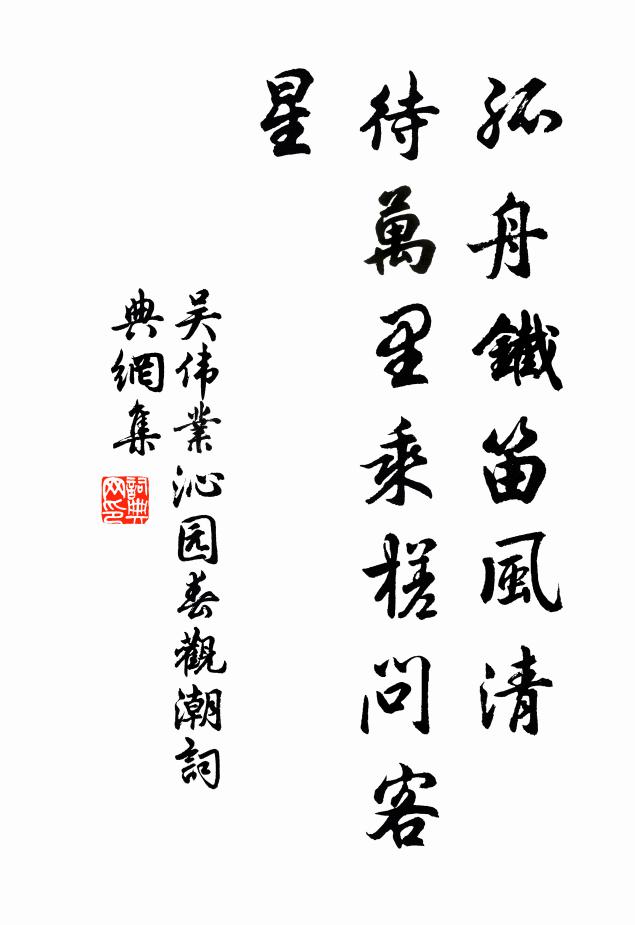 孤舟鐵笛風清
待萬里乘槎問客
星
吴伟業沁园春觀潮詞
典網集
詞典
网印